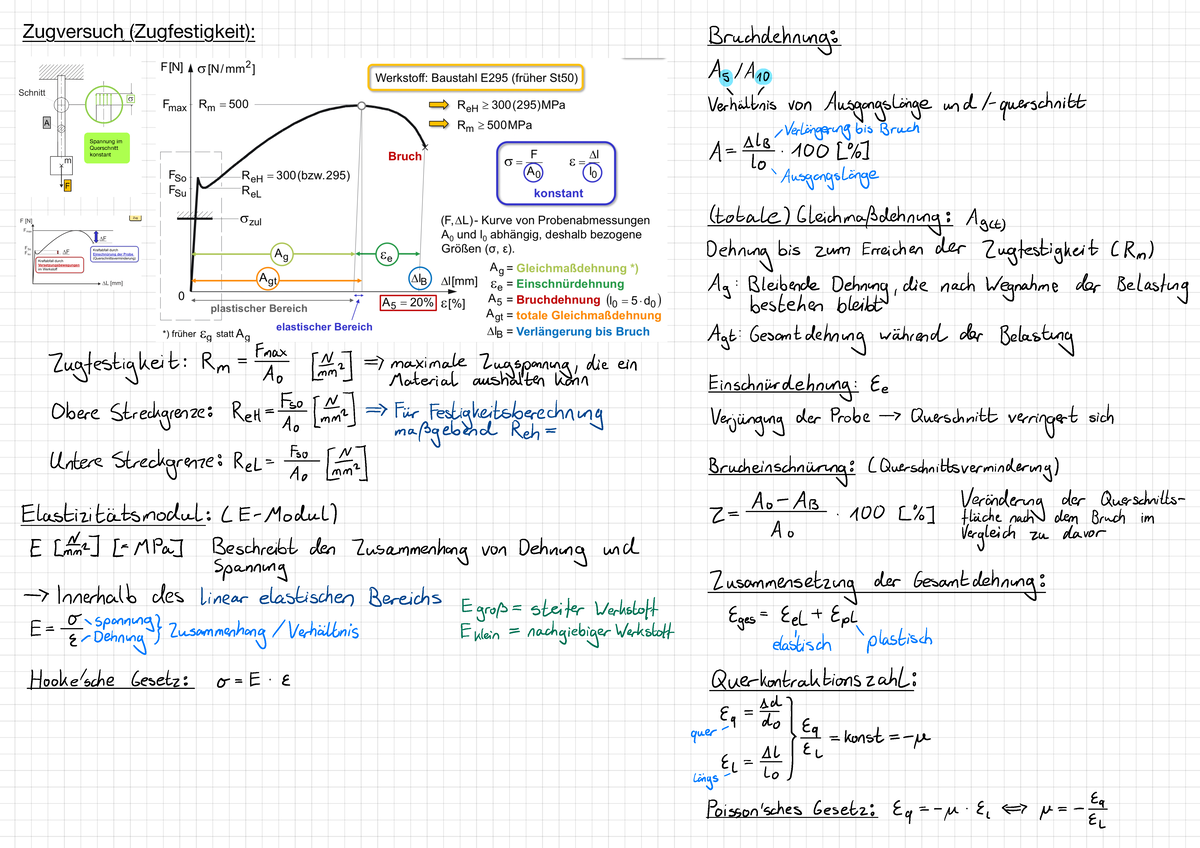 Zugversuch (Zugfestigkeit):
Schnitt
A
σ
Spannung im
Querschnitt
konstant
m
F
F [N] σ [N/mm²]
Werkstoff: Baustahl E295 (früher St50)
Fmax Rm = 500
ReH ≥ 300 (295) MPa
Rm ≥ 500 MPa
Bruch
σ = F / A0 ε = Δl / l0
konstant
FSo ReH = 300 (bzw. 295)
FSu ReL
σzul
(F, ΔL) - Kurve von Probenabmessungen
A0 und l0 abhängig, deshalb bezogene
Größen (σ, ε).
Ag εe
Agt ΔlB Δl [mm]
0 A5 = 20% ε [%]
plastischer Bereich
elastischer Bereich
*) früher εg statt Ag
Ag = Gleichmaßdehnung *)
εe = Einschnürdehnung
A5 = Bruchdehnung (l0 = 5·d0)
Agt = totale Gleichmaßdehnung
ΔlB = Verlängerung bis Bruch
F [N]
ΔF
ΔF
Kraftabfall durch
Einschnürung der Probe
Kraftabfall durch
im Werkstoff
ΔL [mm]
Zugfestigkeit: Rm = Fmax / A0 [N/mm²] ⇒ maximale Zugspannung, die ein
Material aushalten kann
Obere Streckgrenze: ReH = FSo / A0 [N/mm²] ⇒ Für Festigkeitsberechnung
maßgebend Reh =
Untere Streckgrenze: ReL = FSo / A0 [N/mm²]
Elastizitätsmodul: (E-Modul)
E [N/mm²] [= MPa] Beschreibt den Zusammenhang von Dehnung und
Spannung
→ Innerhalb des linear elastischen Bereichs
E = σ / ε spannung Dehnung } Zusammenhang / Verhältnis
E groß = steifer Werkstoff
E klein = nachgiebiger Werkstoff
Hooke'sche Gesetz: σ = E · ε
Bruchdehnung:
A5 / A10
Verhältnis von Ausgangslänge und /-querschnitt
Verlängerung bis Bruch
A = ΔlB / l0 · 100 [%]
Ausgangslänge
(totale) Gleichmaßdehnung: Ag(t)
Dehnung bis zum Erreichen der Zugfestigkeit (Rm)
Ag: Bleibende Dehnung, die nach Wegnahme der Belastung
bestehen bleibt
Agt: Gesamtdehnung während der Belastung
Einschnürdehnung: εe
Verjüngung der Probe → Querschnitt verringert sich
Brucheinschnürung: (Querschnittsverminderung)
Z = A0 - AB / A0 · 100 [%] Veränderung der Querschnitts-
fläche nach dem Bruch im
Vergleich zu davor
Zusammensetzung der Gesamtdehnung:
εges = εel + εpl
elastisch plastisch
Querkontraktionszahl:
quer εq = Δd / d0
längs εL = ΔL / L0
εq / εL = konst = -μ
Poisson'sches Gesetz: εq = -μ · εL ⟺ μ = - εq / εL